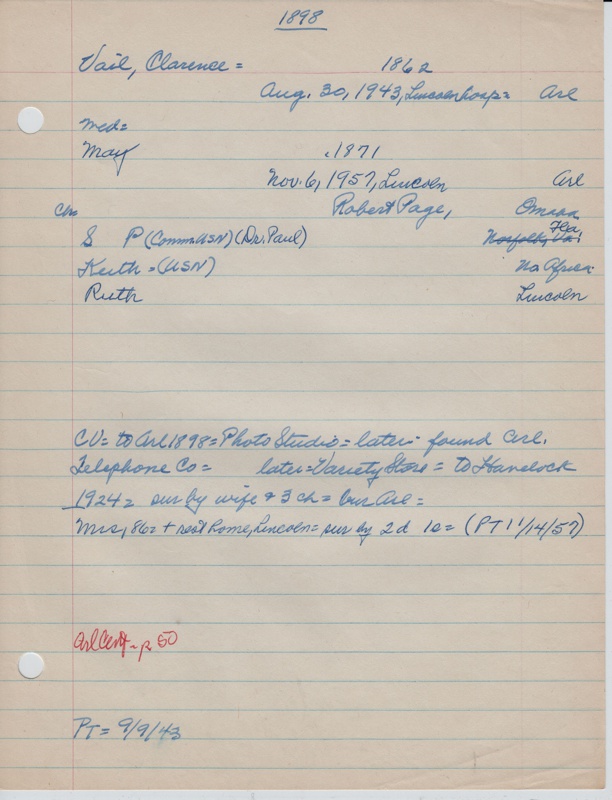 1898
Vail, Clarence = 1862
Aug. 30, 1943, Lincoln hosp = Arl
Med =
May .1871
Nov. 6, 1957, Lincoln Arl
Robert Page, Omaha
Chn
S P (Comm USN) (Dr. Paul) Norfolk, Va. Fla.
Keith = (USN) No Africa
Ruth Lincoln
CV = to Arl 1898 = Photo Studio = later = found Arl.
Telephone Co = later = Variety Store = to Havelock
1924 = sur by wife & 3 ch = bur Arl =
Mrs, 86 = + rest home, Lincoln = sur by 2d 1s = (PT 11/14/57)
Arl Cem - p 50
PT = 9/9/43